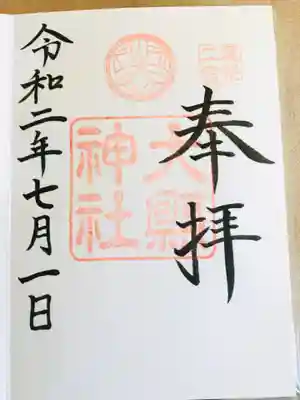 奉拝
大縣
神社
令和二年七月一日